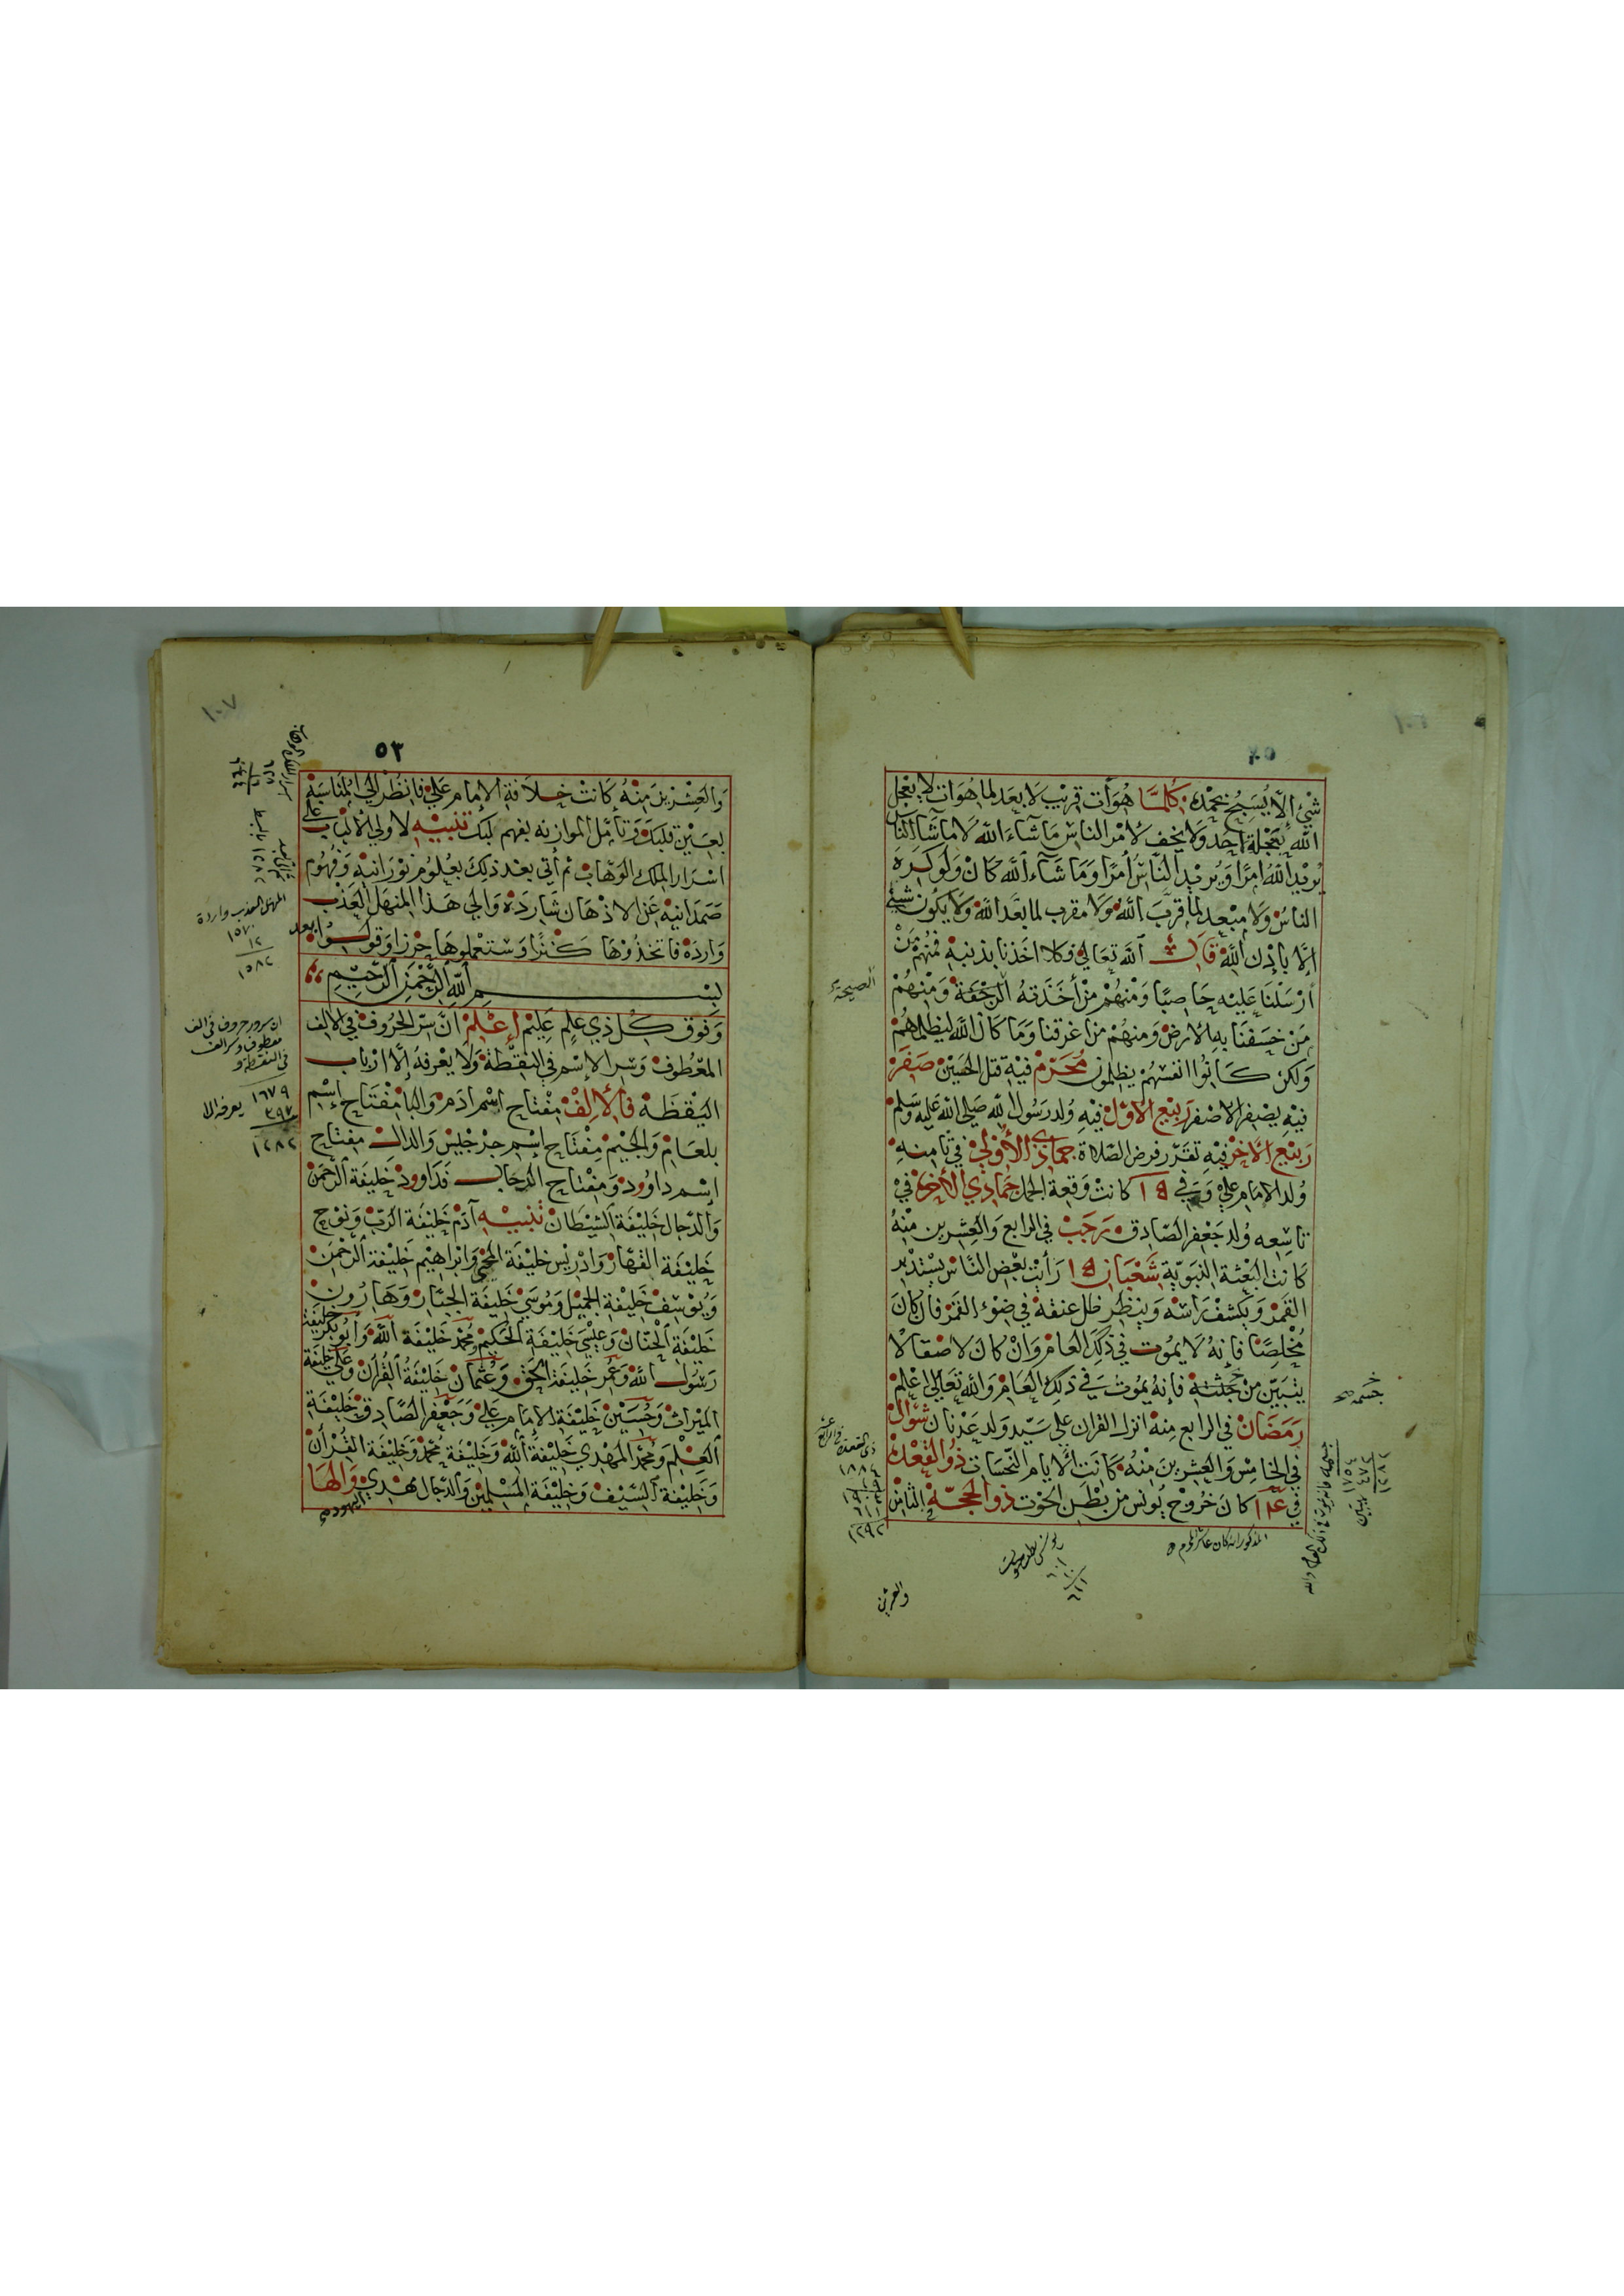 شَيْءٍ اِلَّا يُسَبِّحُ بِحَمْدِهِ كُلَّمَا هُوَ آت قَرِيْب لَا بعد لما هُوَ ات لا يعجل
الله بِعَجْلَةِ اَحَد وَلَا يخف لأمْر الناس مَا شَآءَ اللهُ لَا مَا شَآءَ النَّاس
يُرِيْد اللهُ اَمْرًا وَيُريْد النَّاسُ اَمْرًا وَمَا شَآءَ اَللهُ كَانْ وَلَوْ كَرِهَ
الناسُ وَلَا مُبْعِد لمَا قربَ اللهُ وَلَا مقرب لما بعَّد اللهُ وَلَا يَكُون شَيْءٌ
اِلَّا بِاِذْنِ اللهِ قَالَ اَللهَ تعَالى فكلا اخَذنا بذنبِهِ فَمِنْهُمْ مَنْ
اَرْسَلْنَا عَلَيْهِ حَاصِبًا وَمْنهُمْ مَنْ أَخَذَتهُ الرَّجْفَة وَمِنْهُمْ
الصيحة
مَنْ خَسَفْنَا بِهِ الأرضْ وَمنهُمْ مَنْ اغرقنا وَمَا كَانَ الله ليَظلمَهُمْ
وَلكِنْ كَانُوْا انفسَهُمْ يَظلمون مُحَرَّمْ فيْهِ قتل الحُسَيْن صَفَرْ
فيْهِ يَصْفِر الاصْفر رَبيْع الاوّلْ فيْهِ وُلد رَسُول الله صَلى الله عَليْهِ وَسَلم
رَبيْع الآخِرْ فيْهِ تقرَّر فرضْ الصَّلَاة جمَاذى الأُوْلَىْ فِي ثَامِنهِ
وُلد الامَام عَلي وَفي ١٥ كانتْ وَقعَة الجمَل جُمَادي الأخرىْ في
تاسِعِه وُلد جَعْفر الصَّادِق رَجَبْ في الرابع وَالعِشرين مْنْهُ
كَانتِ البَعْثَة النبَوَيّة شَعْبَان ١٥ رَأيْتْ بَعْض النَّاسْ يَسْتَدْبر
القمَرْ وَيكْشفْ رَاسَهْ وَينظر ظل عنقهْ في ضَوْء القمَرْ فان كَانَ
مُخْلِصًا فَإنهُ لا يَمُوت في ذَلِكَ العَام وَانْ كَانَ لاصقا لا
يتبَيّن من جثتِه فإنهُ يَمُوتَ فِي ذلِكَ العَام وَالله تعَالى اعْلمْ
جسمه صح
رَمَضَانْ في الرابع مِنْهْ انزل القرآن عَلى سَيّد ولد عَدْنان شَوَّال
في الخامِس وَالعِشرينَ مِنْهُ كَانَتْ الايام النَّحْسَات ذُو القعْدَة
في ١٤ كَانَ خرُوْج يُونس من بَطْن الحُوت ذو الحجّة الثامِنْ
والعشرين
٥٣
وَالعِشْرِيْنَ مِنْهُ كَانَتْ خِلَافَة الإمَام عَلي فَانظُرْ اِلَى المُنَاسَبَة
بعَيْن قلبكَ وَتامّل الموازنه بفهم لبّكَ تَنْبِيْهِ لاولي الالبَاب على
اسْرَار الملِك الوَهّاب ثم أتي بعْد ذلِكَ بعُلُومْ نوْرَانيه وَفُهُوم
صَمَدَانيهْ عَن الاذْهَان شَارِدَهْ وَالى هَذا المنهَل العَذْب
وَارِدَهْ فاتخذُوْهَا كَنْزًا وَستَعْملوهَا حِرْزا وَقولُوا بعد
بِسْمِ اللهِ الرَّحْمٰنِ الرَّحِيْمِ
وَفَوق كُل ذِي عِلْم عَلِيْم إعْلَمْ انَّ سِرّ الحرُوفْ في الالِف
المَعْطُوفْ وَسِر الإسْم في النقطَةْ وَلَا يَعْرفهُ إلَّا ارْبَابْ
اليَقظَةْ فَألألِفْ مِفْتاح اِسْم ادَمْ وَالبَا مِفْتَاح إسْم
بلعَامْ وَالجيْمْ مِفتاحْ إسْم جرْجليْس وَالدَّالْ مِفتاح
إسْم دَاوُودْ وَمِفْتاح الدَّجّال فدَاووْد خَليفة الرَّحمَنْ
وَالدَّجال خَليْفَة الشَّيْطَانْ تنبيْهِ آدَمْ خَليْفة الرَّبّ وَنوْح
خَليْفَة القهّارْ وَادْريْس خَليْفَة المحْي وَابْراهيْم خَليْفة الرَّحْمَنْ
وَيُوسِفْ خَليْفة الجميْل وَمُوسَي خَليْفَة الجبّارْ وَهَارُونْ
خَليْفَة الحَنانْ وَعِيْسَي خَليْفَة الحَكيمْ وَمُحَمْد خَليْفَة اللهْ وَأبُو بَكْر خليْفَة
رَسُول اللهْ وَعُمَر خَليفَة الحقّ وَعُثمَانْ خَليْفَةُ القُرآنْ وَعلي خليفة
الميْراثْ وَحُسَيْنْ خَليْفَة الإمَام عَلي وَجَعْفر الصَّادِق خَليْفَة
العِلْم وَمُحَمّد المَهْدِي خَليْفَة اَللهْ وَخَليْفة مُحَمّدْ وَخَليْفَة القُرْآنْ
وَخَليْفَة السَّيْف وَخليْفَة المسْلِمِيْنْ وَالدَّجّال مَهْدِيْ وَالهَا
اليهود صح